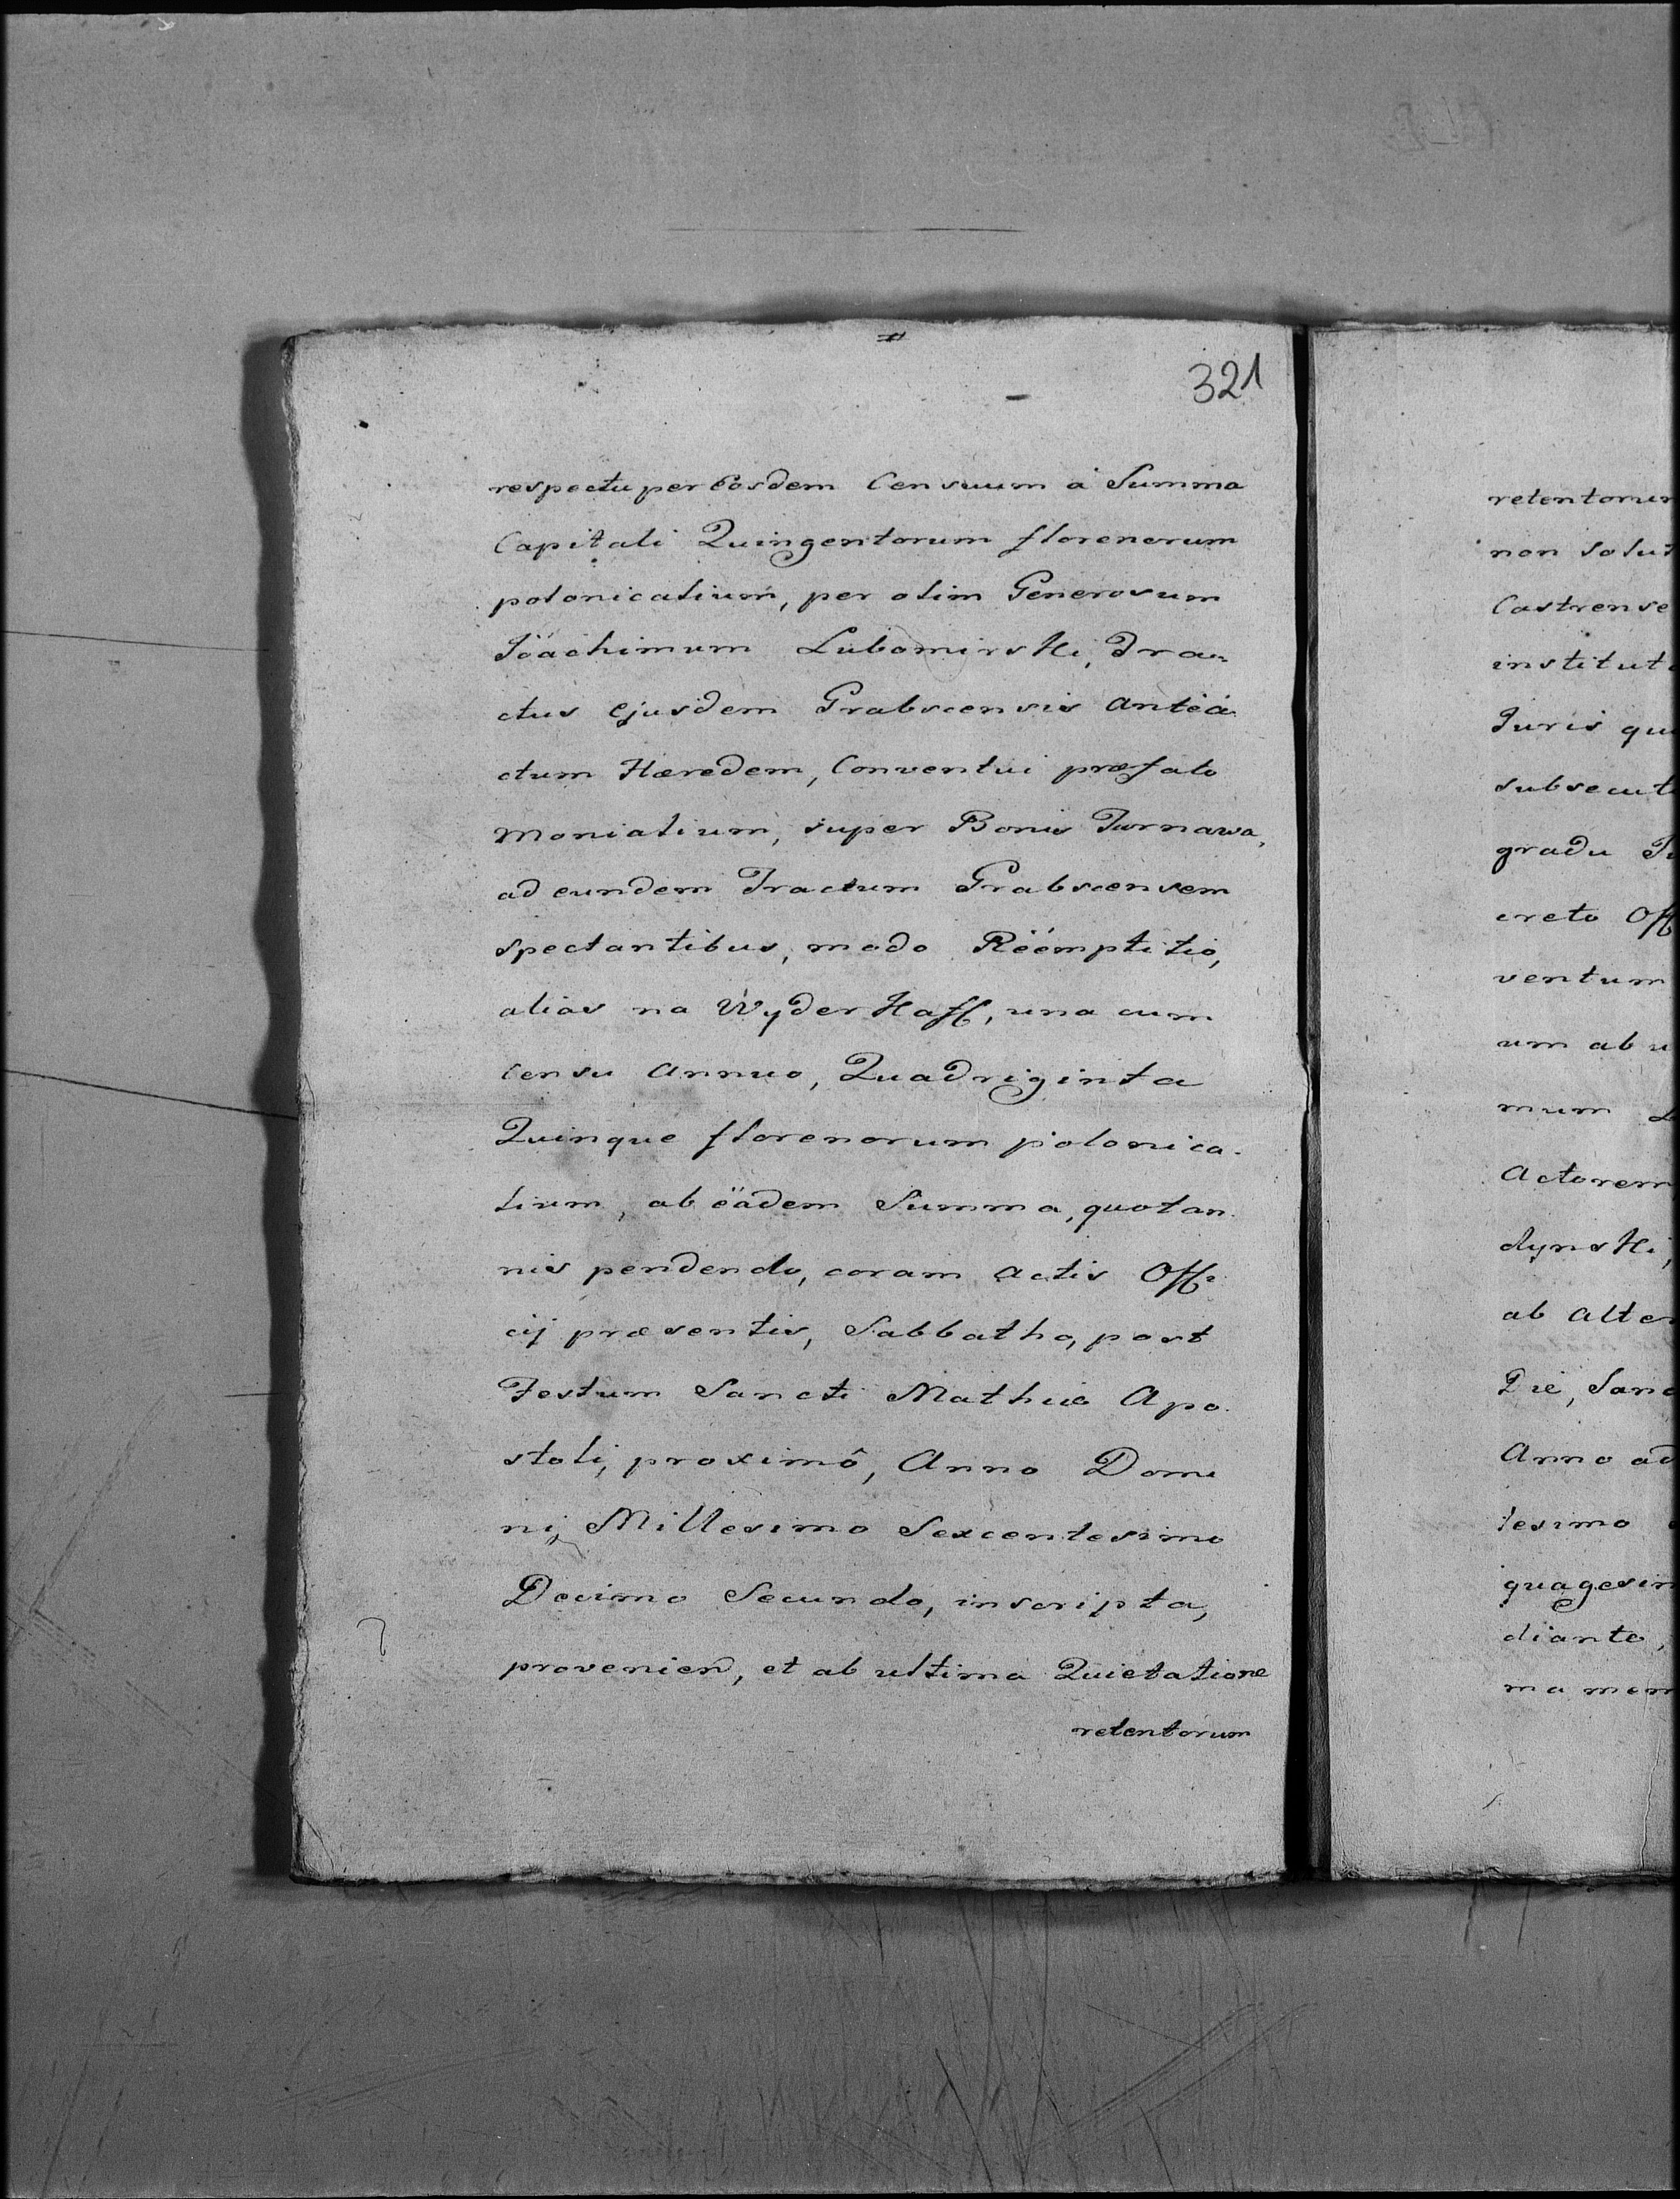 321
respectu per Eosdem Censuum à Summa
Capitali Quingentorum florenorum
polonicalium, per olim Generosum
Jöachimum Lubomirski, Tra-
ctus Ejusdem Grabscensis antëa
ctum Hæredem, Conventui præfato
Monialium, super Bonis Turnawa,
ad eundem Tractum Grabscensem
spectantibus, modo Rëemptitio,
alias na WyderKaff, una cum
Censu annuo, Quadriginta
Quinque florenorum polonica-
lium, ab ëadem Summa, quotan
nis pendendo, coram actis Offi
cij præsentis, Sabbatho, post
Festum Sancti Mathiæ Apo
stoli, proximô, Anno Domi
ni, Millesimo Sexcentesimo
Decimo Secundo, inscripta,
provenien, et ab ultima Quietatione
retentorum
retentorum
non solut
Castrense
institut
Juris qu
subsecut
gradu
creto Off
ventum
um ab u
mum
Actorem
dynski,
ab Alte
Die, Sanc
Anno ad
tesimo
quagesim
diante,
ma mem